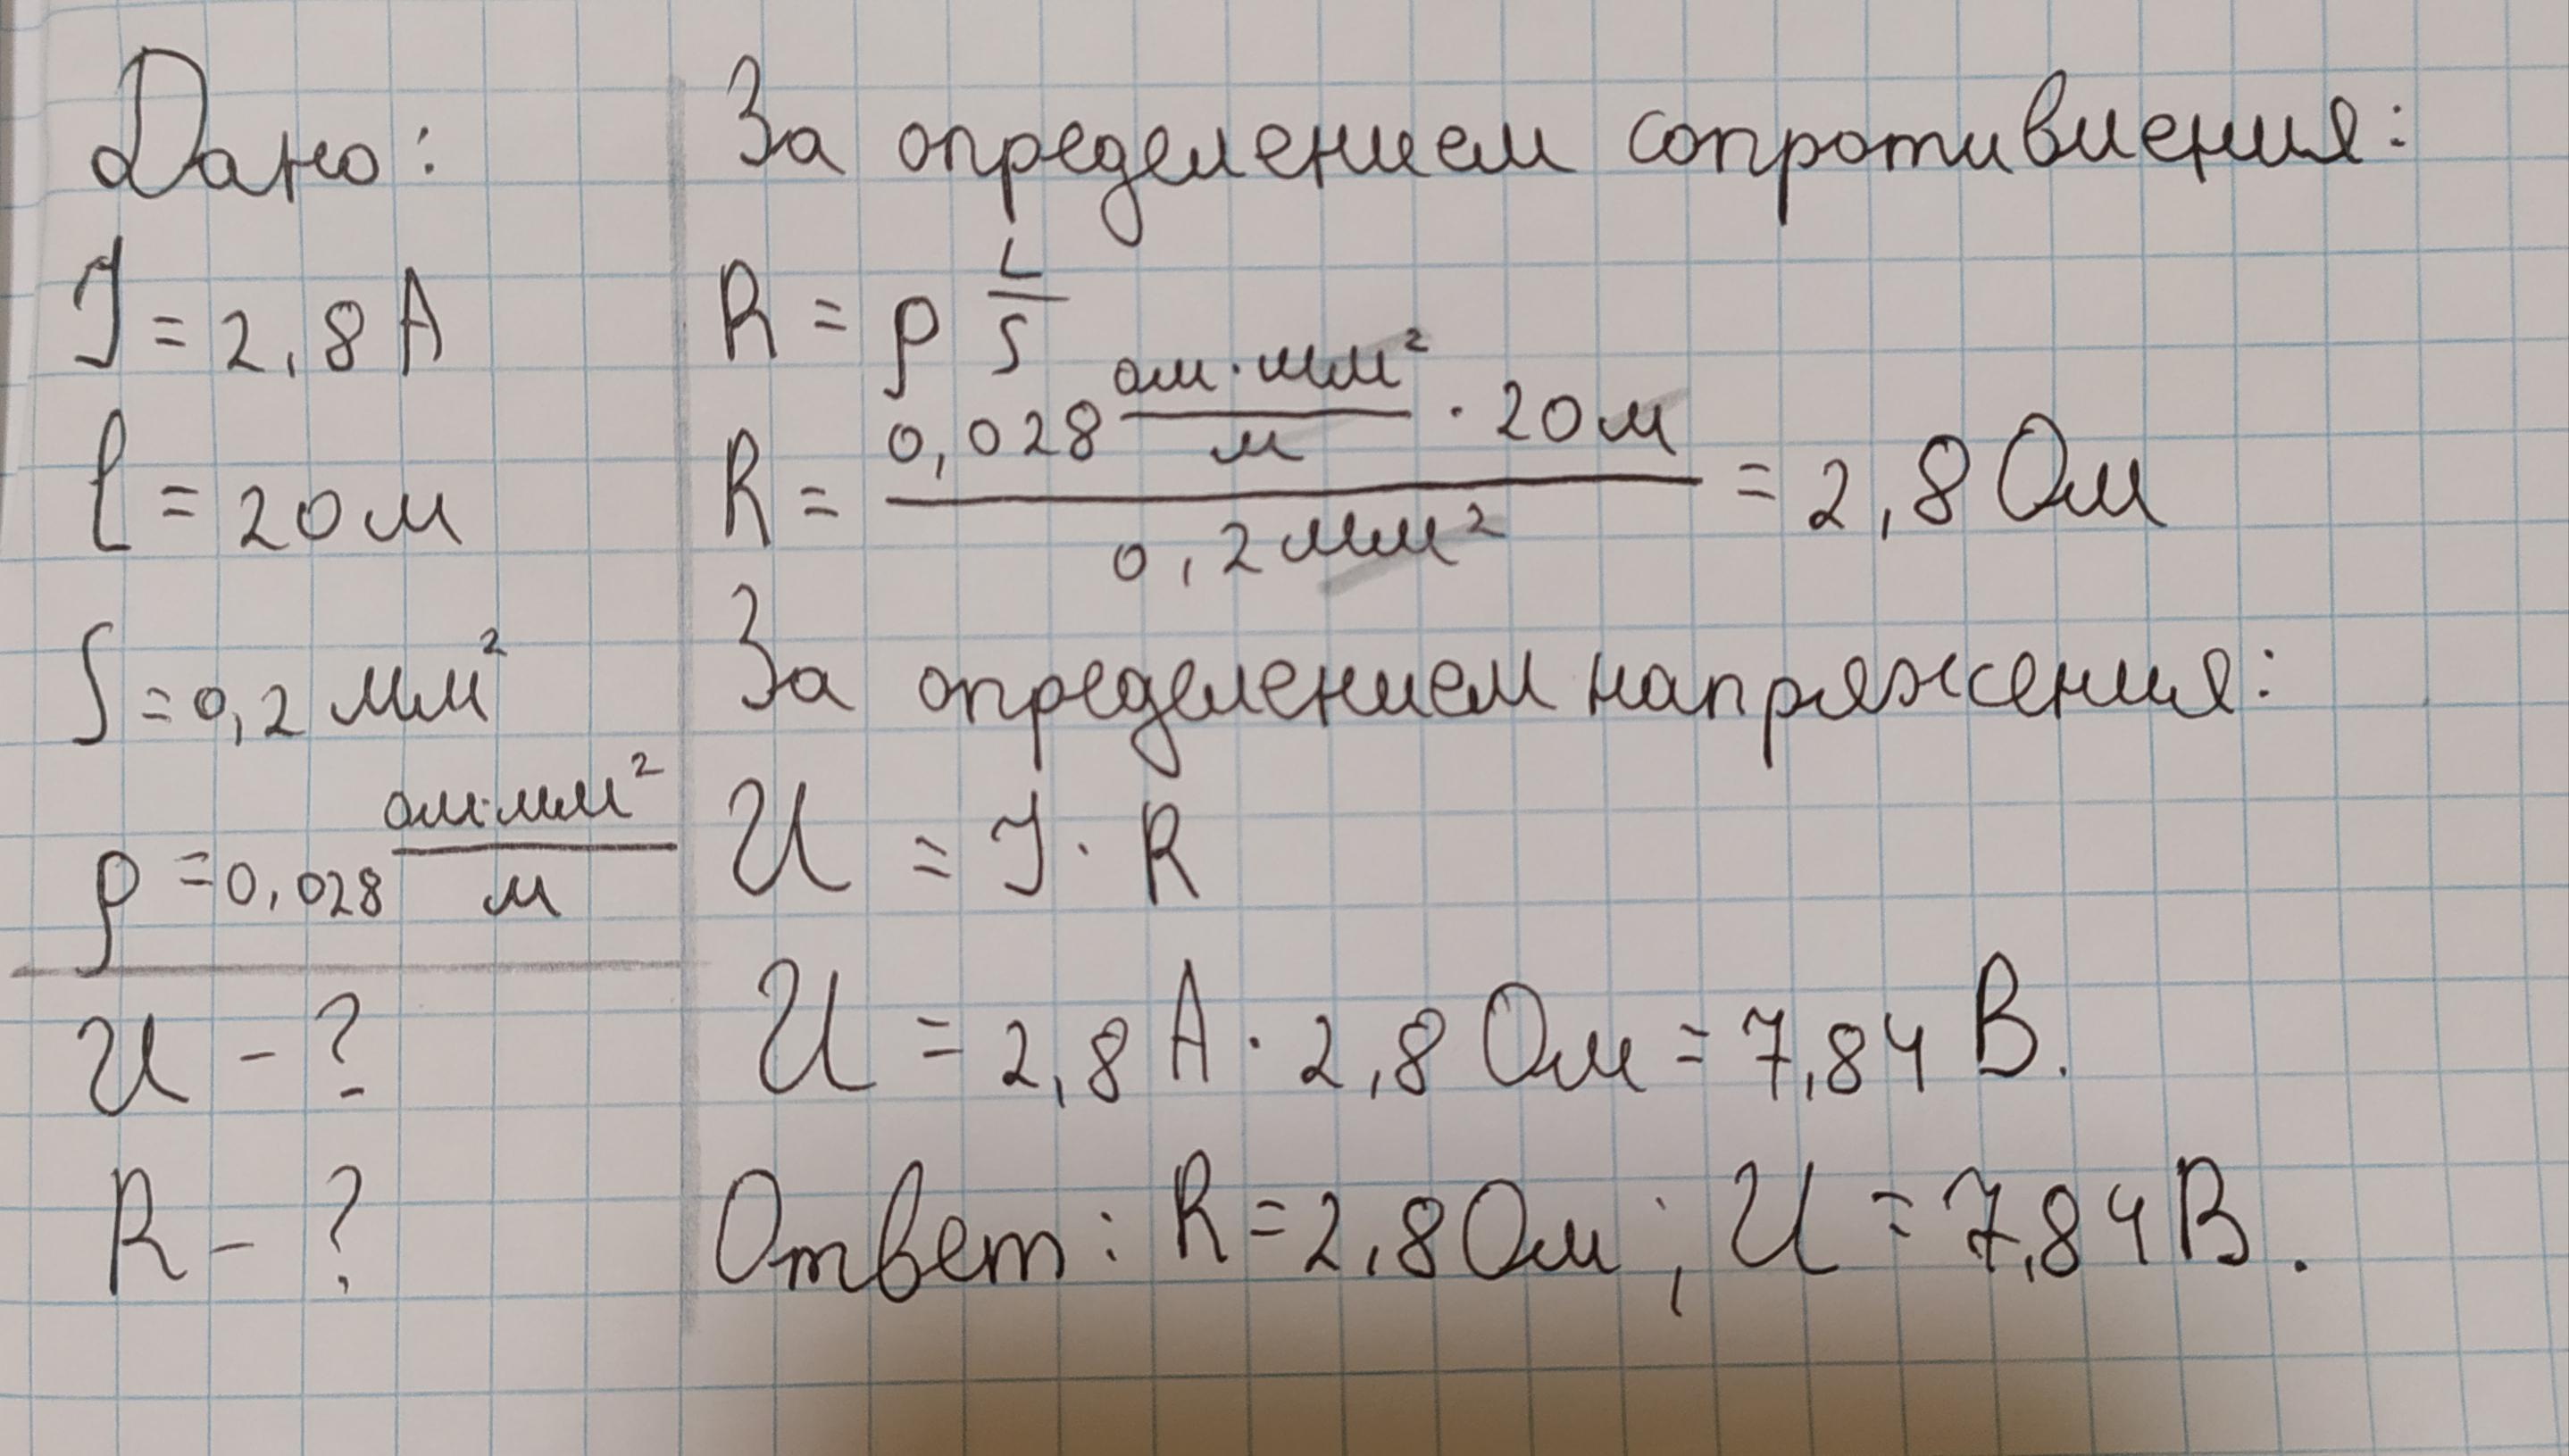 Дано:
I = 2,8 А
l = 20 м
S = 0,2 мм²
ρ = 0,028 ом·мм²/м
U - ?
R - ?
За определением сопротивления:
R = ρ L/S
R = 0,028 ом·мм²/м · 20 м / 0,2 мм² = 2,8 Ом
За определением напряжения:
U = I · R
U = 2,8 А · 2,8 Ом = 7,84 В.
Ответ: R = 2,8 Ом ; U = 7,84 В.